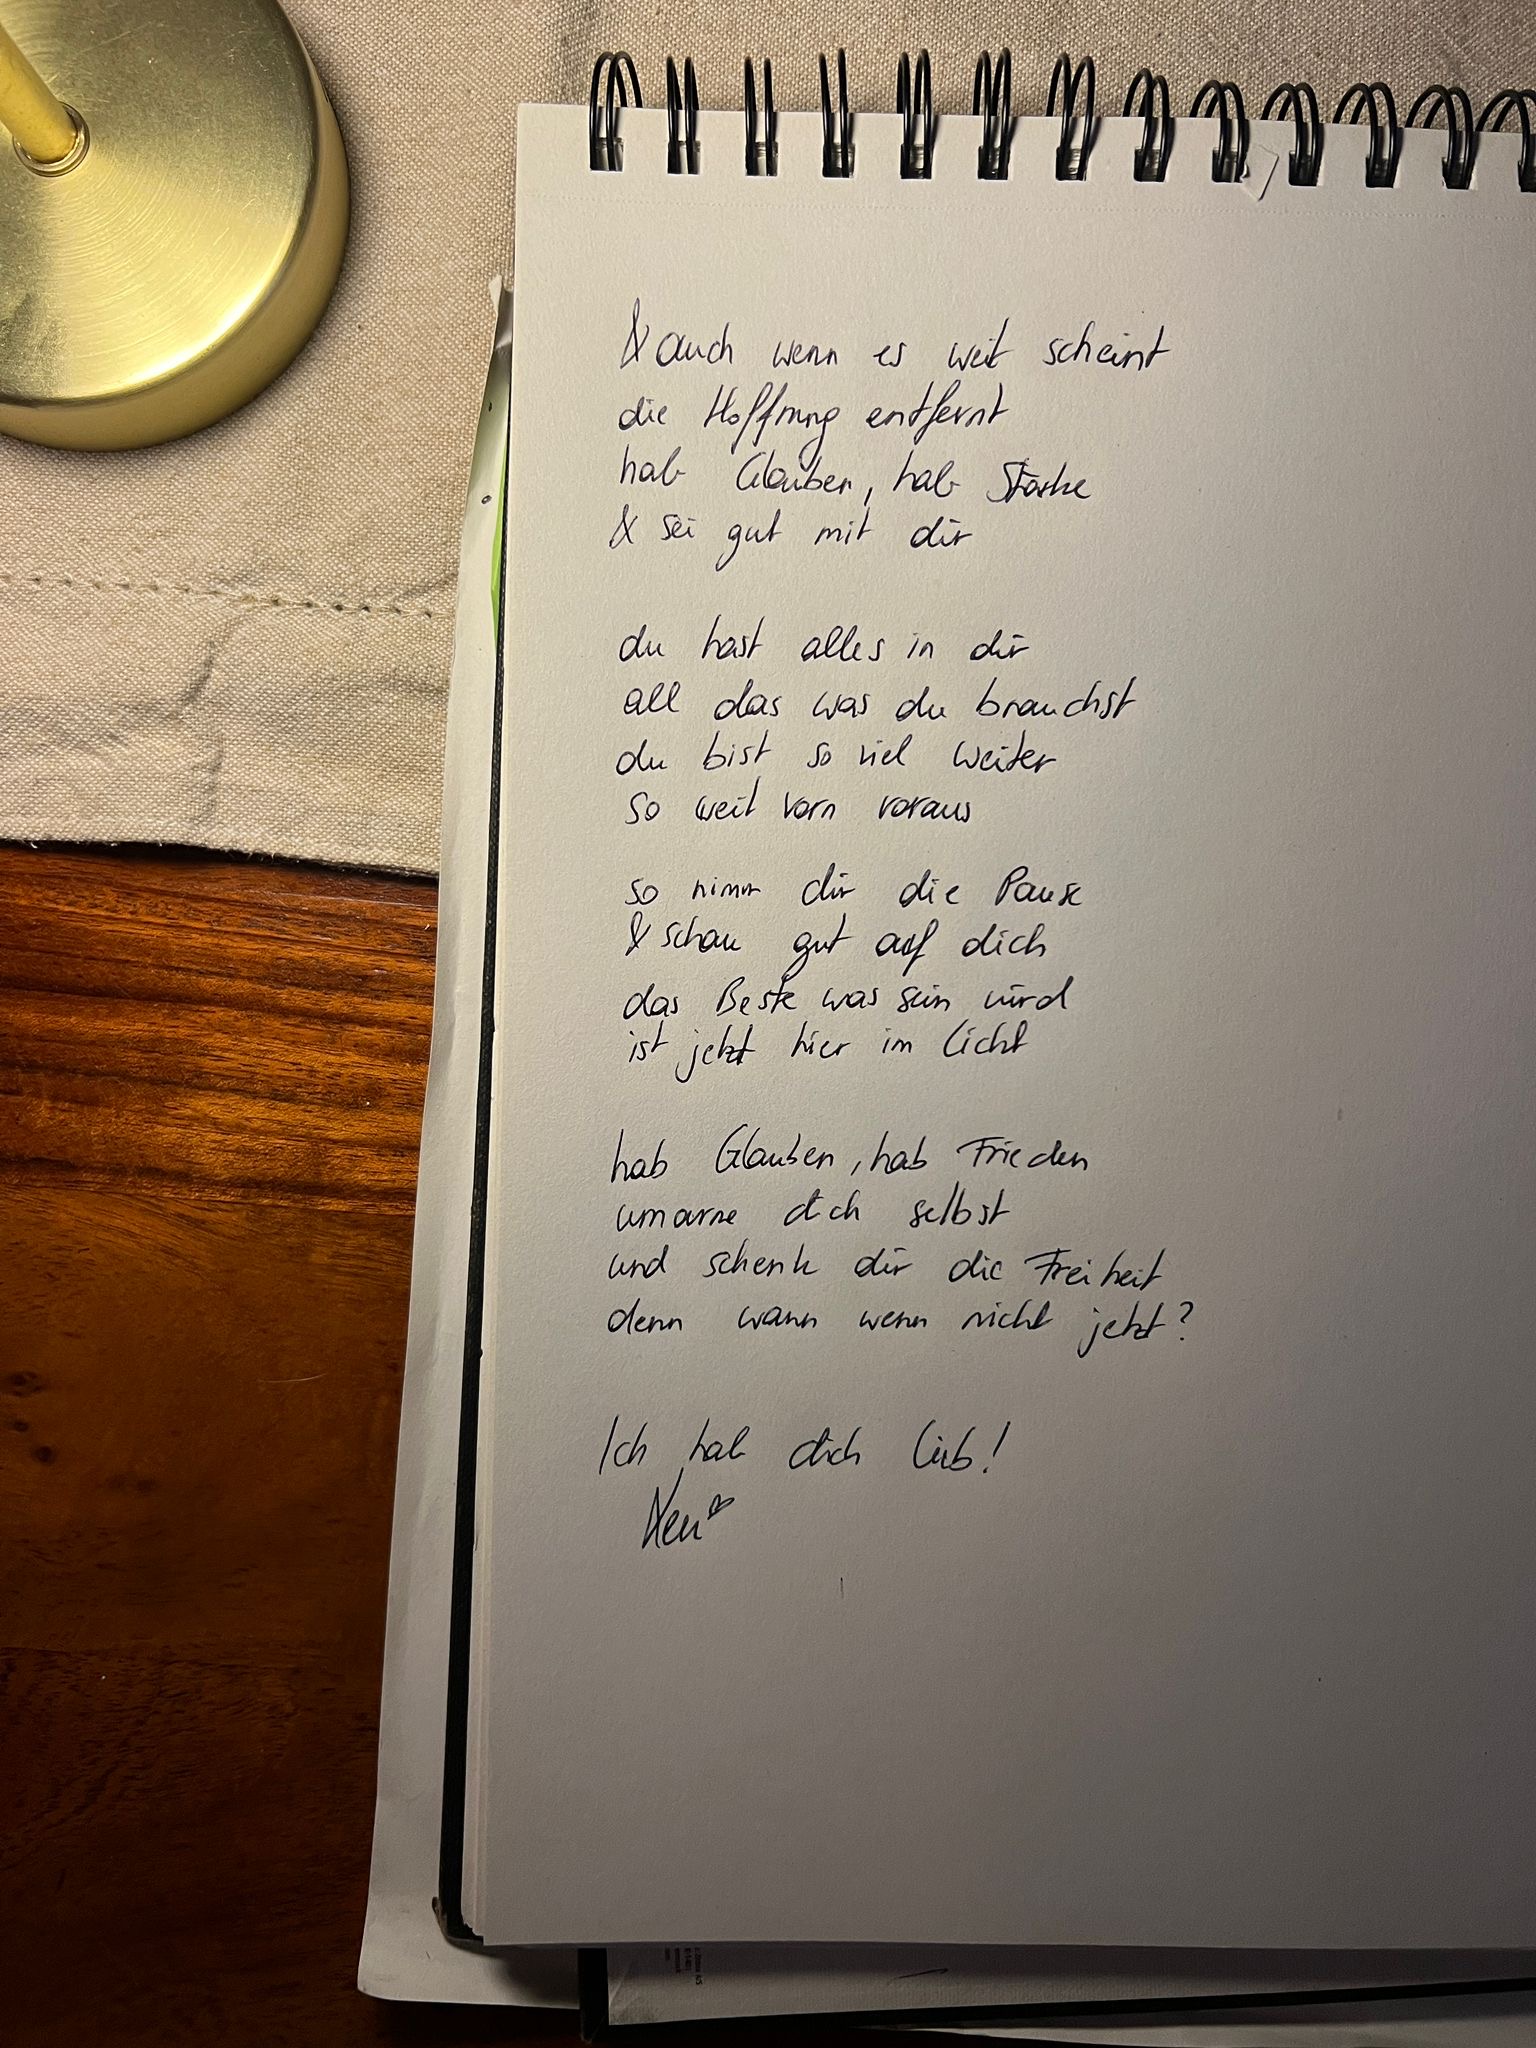 & auch wenn es weit scheint
die Hoffnung entfernt
hab Glauben, hab Stärke
& sei gut mit dir
du hast alles in dir
all das was du brauchst
du bist so viel weiter
so weit vorn voraus
so nimm dir die Pause
& schau gut auf dich
das Beste was sein wird
ist jetzt hier im Licht
hab Glauben, hab Frieden
umarme dich selbst
und schenk dir die Freiheit
denn wann wenn nicht jetzt?
Ich hab dich lieb!